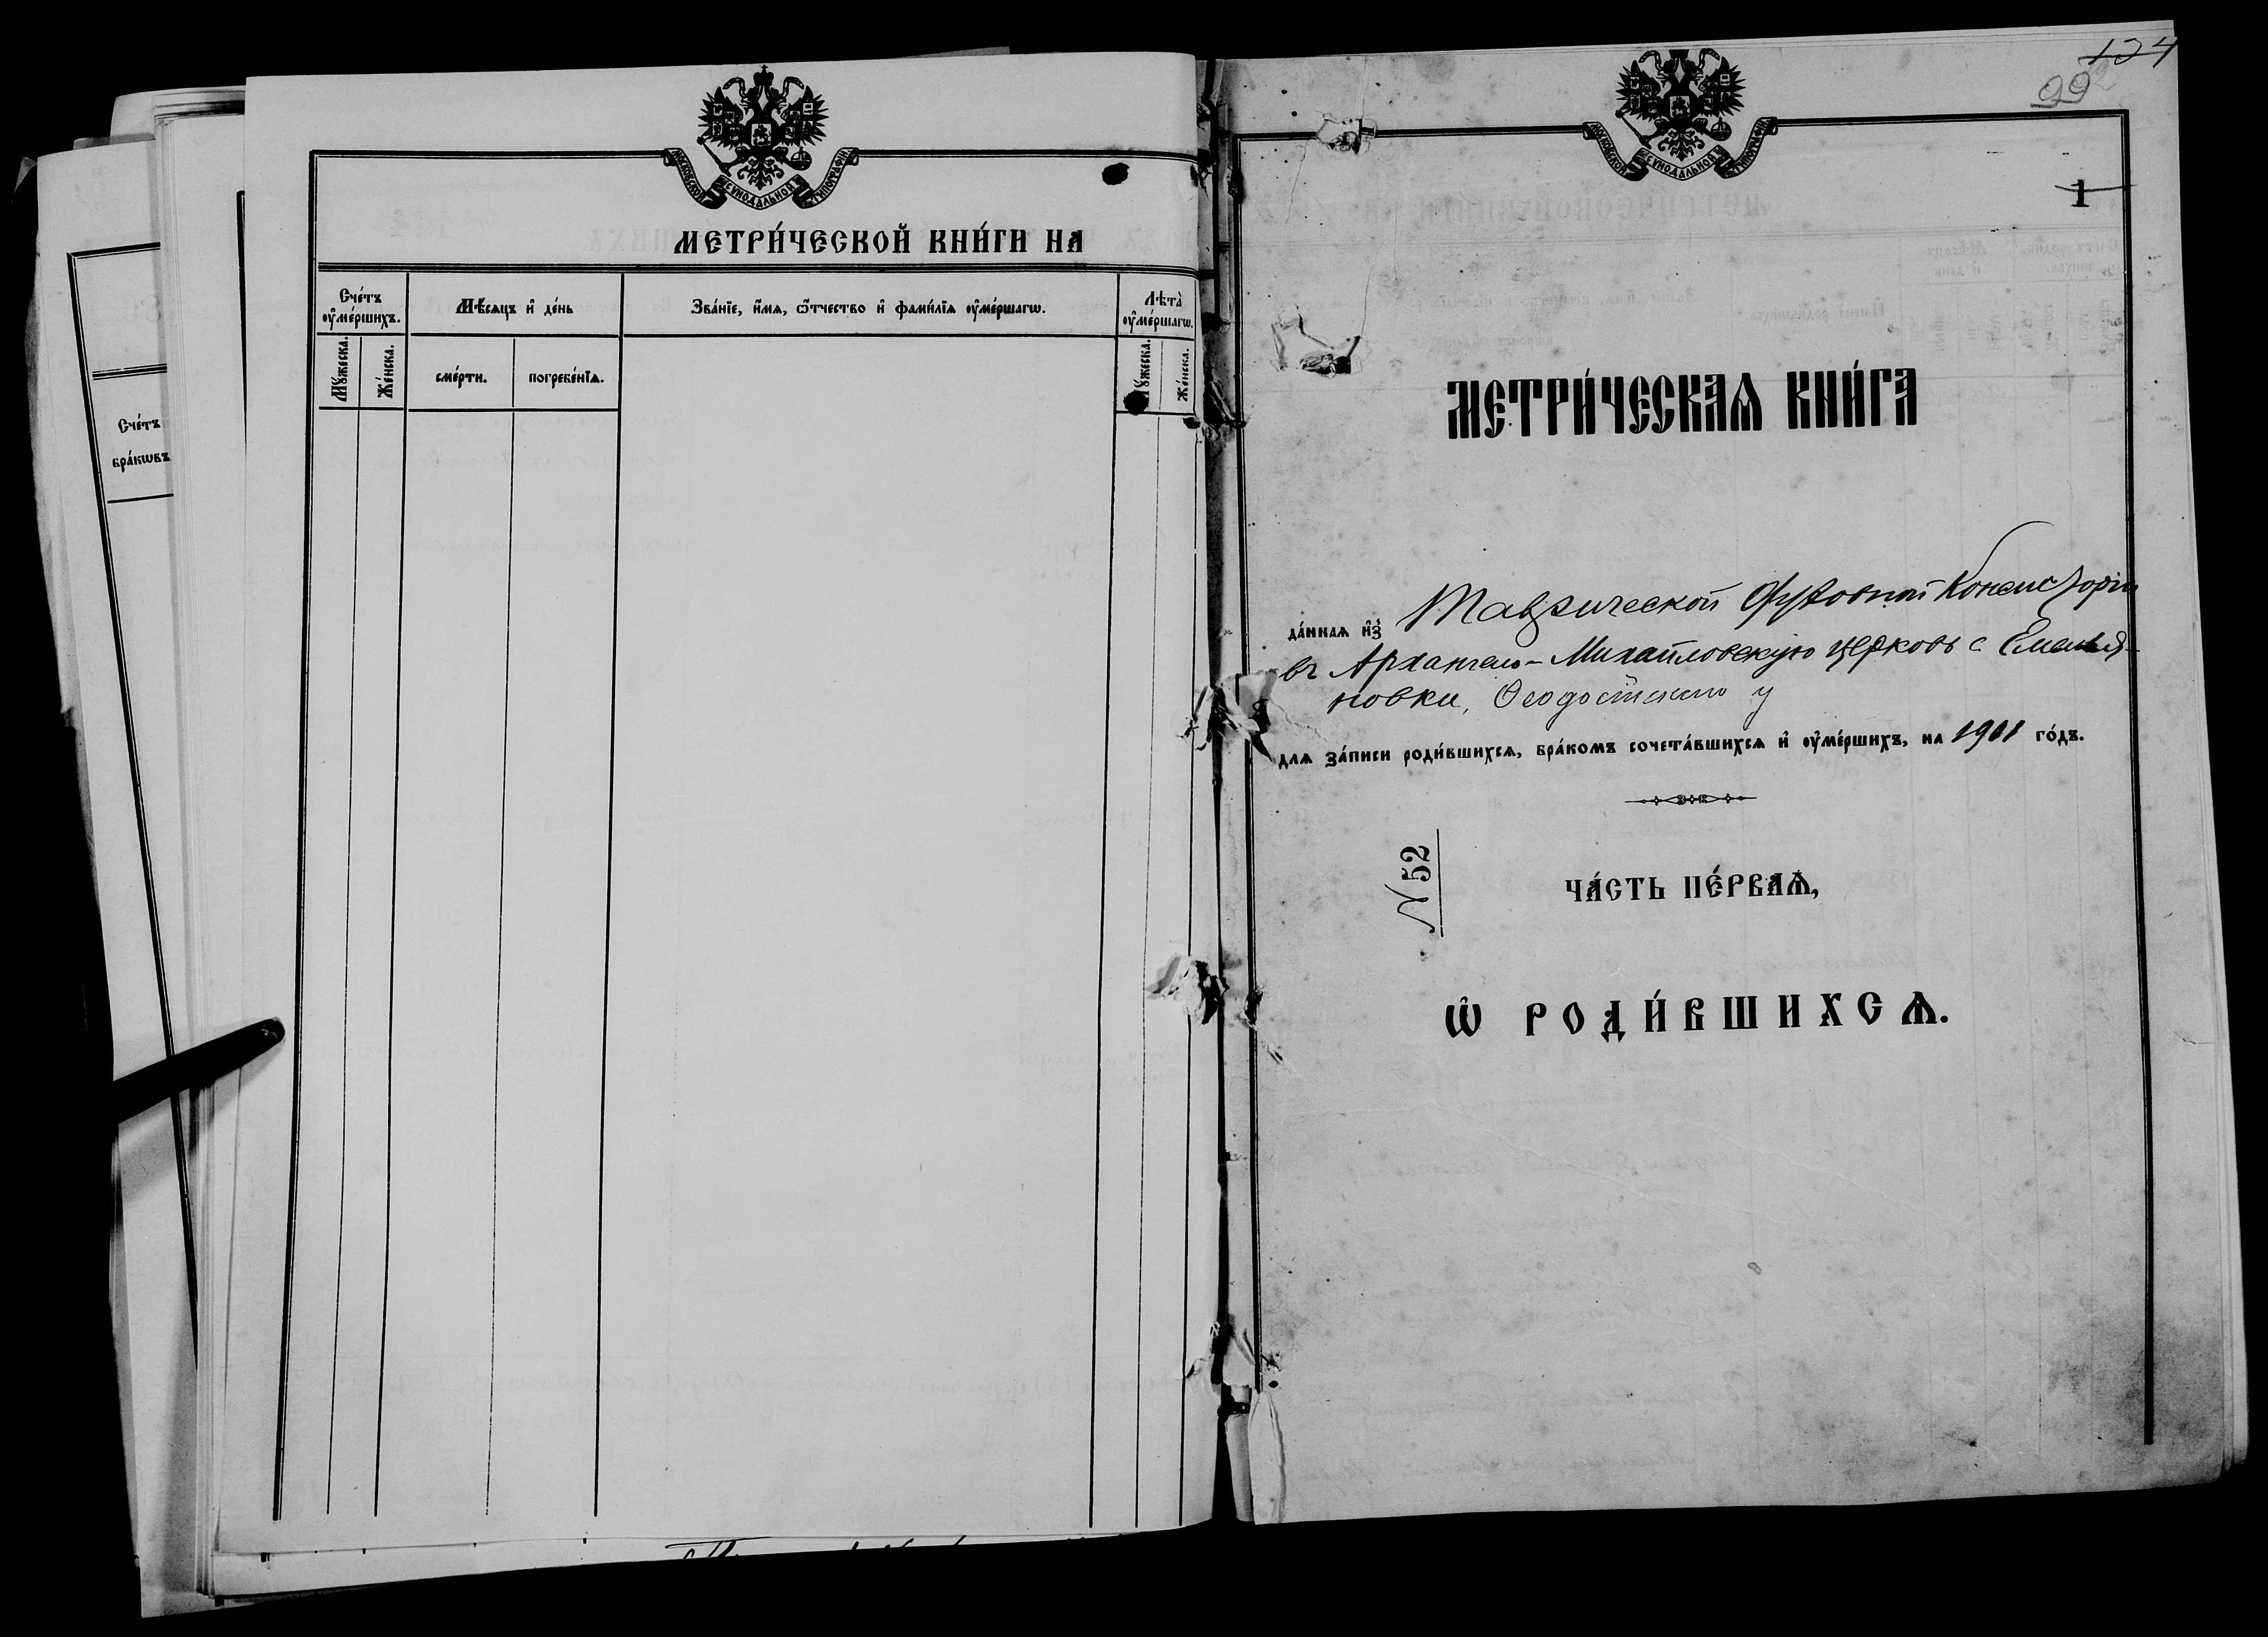 Счéтъ
брáкѡвъ
МОСКОВСКОЙ СѴНОДАЛЬНОЙ ТИПОГРАФІИ
МЕТРИ́ЧЕСКОЙ КНИ́ГИ НА
Счéтъ
ᲂу҆мéршихъ.
Мѣ́сяцъ и҆ дéнь
Звáнїе, и҆́мѧ, ѻ҆́тчество и҆ фами́лїѧ ᲂу҆мéршагѡ.
Лѣ́та
ᲂу҆мéршагѡ.
Мꙋ́жеска.
Жéнска.
смéрти.
погребéнїѧ.
Мꙋ́жеска.
Жéнска.
124
99
МОСКОВСКОЙ СѴНОДАЛЬНОЙ ТИПОГРАФІИ
1
МЕТРИ́ЧЕСКАѦ КНИ́ГА
дáннаѧ и҆з̾ Таврической Духовной Консисторіи
въ Архангело-Михайловскую церковь с. Емелья-
новки, Ѳеодосійскаго у
для зáписи роди́вшихсѧ, брáкомъ сочетáвшихсѧ и҆ ᲂу҆мéршихъ, на 1901 го́дъ.
N 52
ЧÁСТЬ ПÉРВАѦ,
Ѽ РОДИ́ВШИХСѦ.